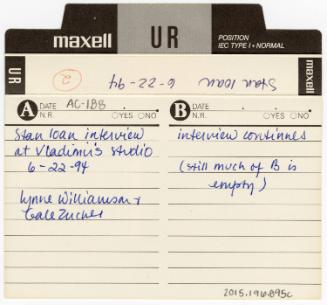 maxell UR POSITION
IEC TYPE I • NORMAL
UR 2 Stan Ioan 6-22-94 maxell
A DATE AC-188
N.R. YES NO
B DATE
N.R. YES NO
Stan Ioan interview
at Vladimir's studio
6-22-94
Lynne Williamson +
Gale Zucker
interview continues
(still much of B is
empty)
2015.196.895c